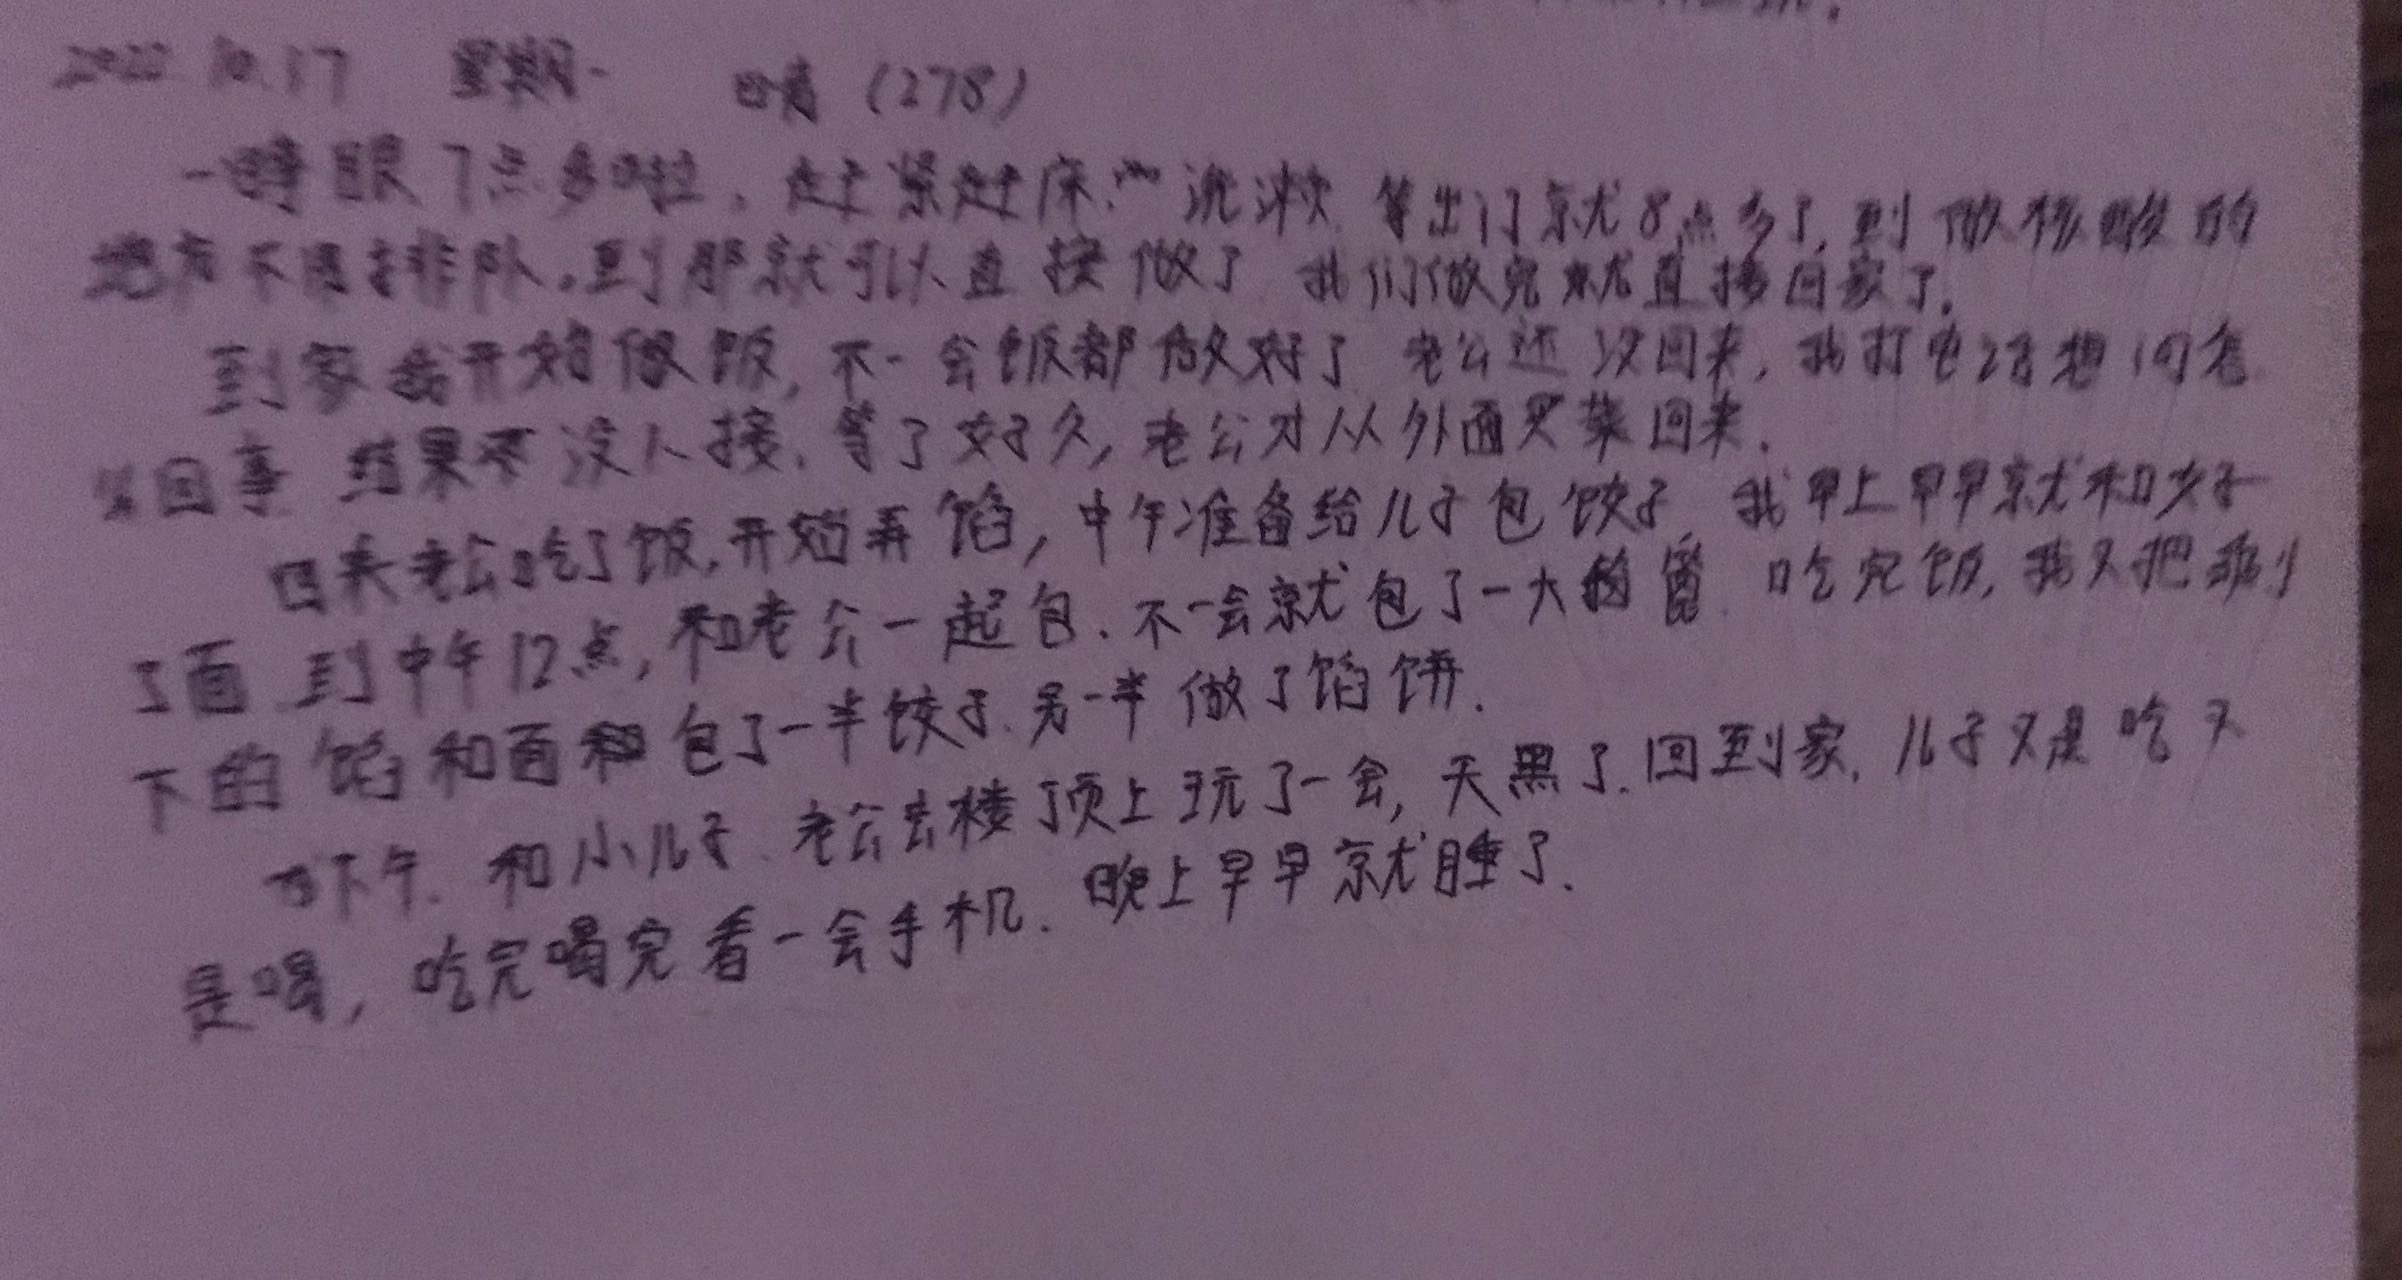 2022.10.17 星期一 晴（278）
一睁眼7点多啦，赶紧起床洗漱，等出门就8点多了，到做核酸的
地方不用去排队，到那就可以直接做了，我们做完就直接回家了。
到家我开始做饭，不一会饭都做好了，老公还没回来，我打电话想问怎
么回事 结果 没人接，等了好久，老公才从外面买菜回来.
回来老公吃了饭，开始弄馅，中午准备给儿子包饺子，我早上早早就和好
了面 到中午12点，和老公一起包. 不一会就包了一大 吃完饭，我又把剩
下的馅和面 包了一半饺子.另一半做了馅饼.
下午. 和小儿子、老公去楼顶上玩了一会，天黑了.回到家，儿子又是吃又
是喝，吃完喝完看一会手机. 晚上早早就睡了.